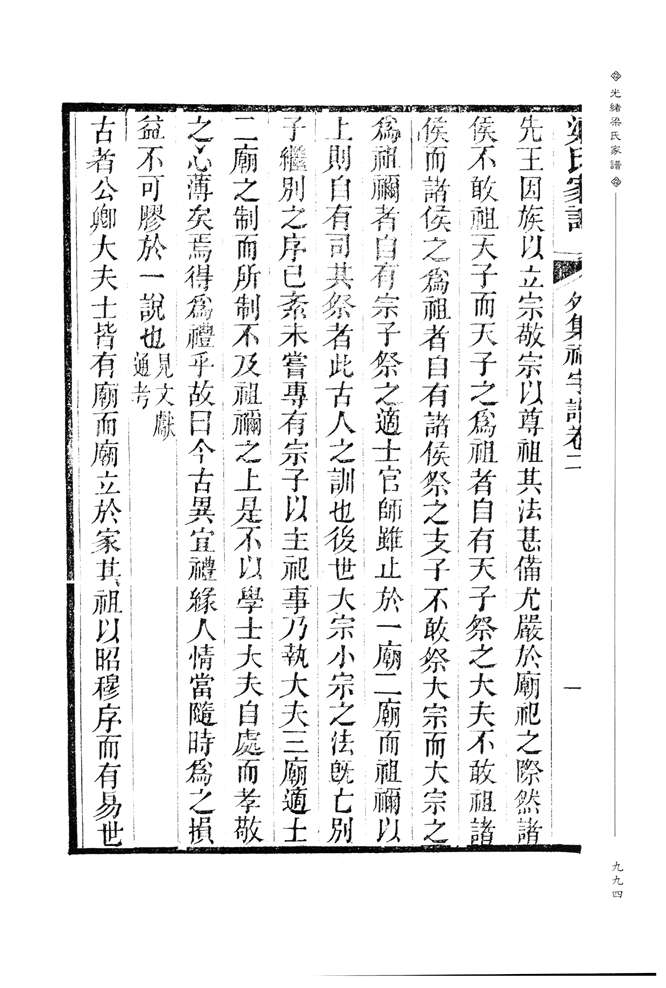 光緒梁氏家譜
九九四
梁氏家譜 外集祠宇譜卷二 一
先王因族以立宗敬宗以尊祖其法甚備尤嚴於廟祀之際然諸
侯不敢祖天子而天子之爲祖者自有天子祭之大夫不敢祖諸
侯而諸侯之爲祖者自有諸侯祭之支子不敢祭大宗而大宗之
爲祖禰者自有宗子祭之適士官師雖止於一廟二廟而祖禰以
上則自有司其祭者此古人之訓也後世大宗小宗之法旣亡別
子繼別之序已紊未嘗專有宗子以主祀事乃執大夫三廟適士
二廟之制而所制不及祖禰之上是不以學士大夫自處而孝敬
之心薄矣焉得爲禮乎故曰今古異宜禮緣人情當隨時爲之損
益不可膠於一說也見文獻通考
古者公卿大夫士皆有廟而廟立於家其祖以昭穆序而有易世